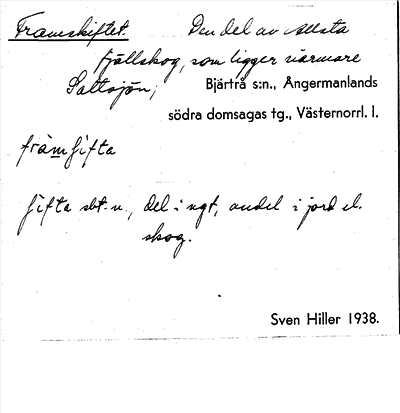 Framskiftet. Den del av Allsta
fjällskog, som ligger närmare
Saltsjön;
Bjärtrå s:n., Ångermanlands
södra domsagas tg., Västernorrl. l.
främʃifta
ʃifta sbt. n., del i ngt, andel i jord el.
skog.
Sven Hiller 1938.